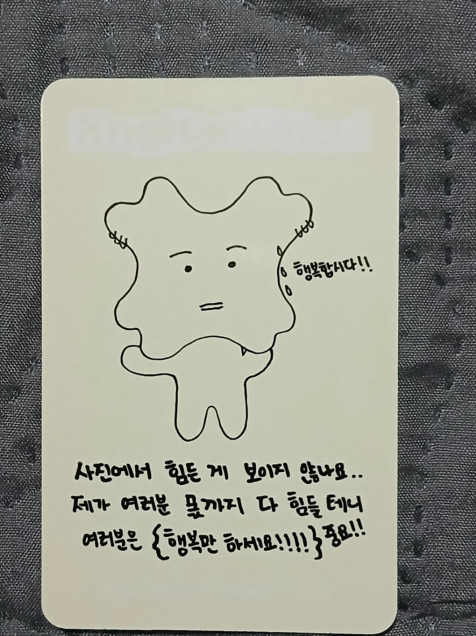 행복합시다!!
사진에서 힘든 게 보이지 않나요..
제가 여러분 몫까지 다 힘들 테니
여러분은 {행복만 하세요!!!!} 중요!!